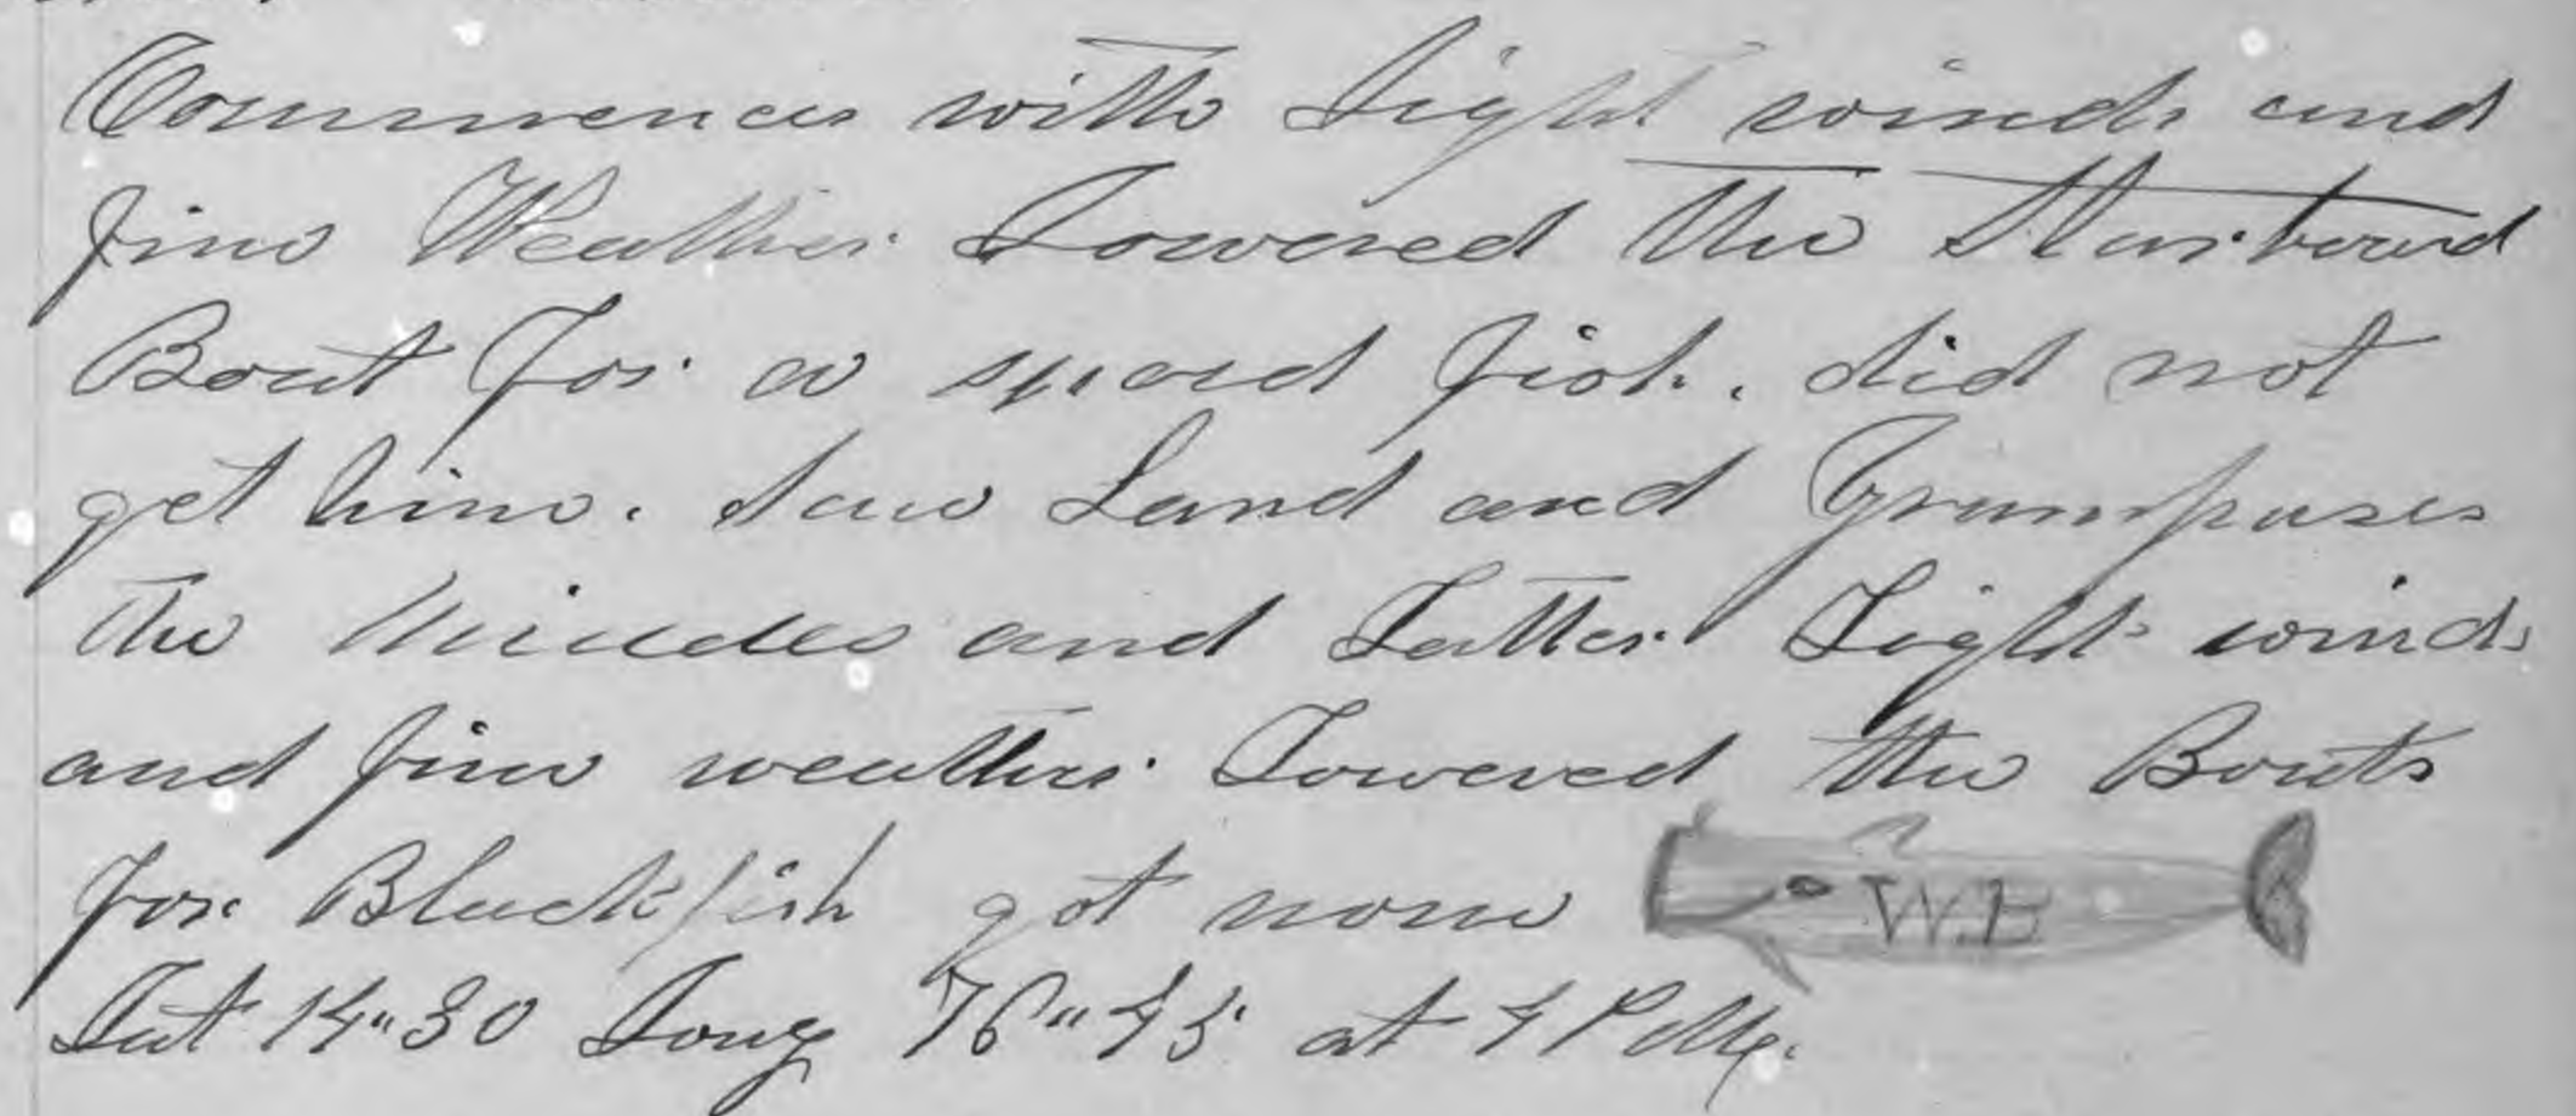 Commences with Light winds and
fine Weather Lowered the Starboard
Boat for a sword fish. did not
get him. Saw Land and Grampuses
the Middle and Latter Light winds
and fine weather Lowered the Boats
for Blackfish got none W.B
Lat 14"30 Long 76"45 at 4 PM.